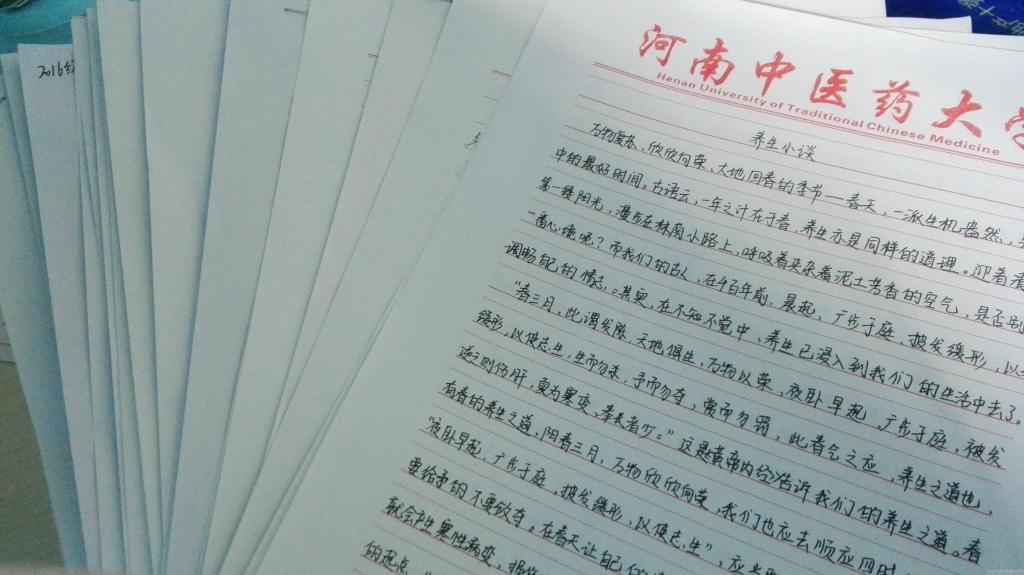 2016级
河南中医药大学
Henan University of Traditional Chinese Medicine
养生小谈
万物复苏、欣欣向荣、大地回春的季节—春天,一派生机盎然,
中的最好时间。古语云,一年之计在于春,养生亦是同样的道理。迎着春
第一缕阳光,漫步在林荫小路上,呼吸着夹杂着泥土芳香的空气,是否
一番心境呢?而我们的古人,在千百年前,晨起,广步于庭,披发缓形,以
调畅自己的情志。其实,在不知不觉中,养生已浸入到我们的生活中去了。
“春三月,此谓发陈,天地俱生,万物以荣,夜卧早起,广步于庭,被发
缓形,以使志生,生而勿杀,予而勿夺,赏而勿罚,此春气之应,养生之道也,
逆之则伤肝,夏为寒变,奉长者少。”这是黄帝内经告诉我们的养生之道。春
有春的养生之道,阳春三月,万物欣欣向荣,我们也应去顺应四时
“夜卧早起,广步于庭,披发缓形,以使志生”,应当
要给予的不要敛夺。在春天让自己的
就会产生寒性病变,损伤
的起点